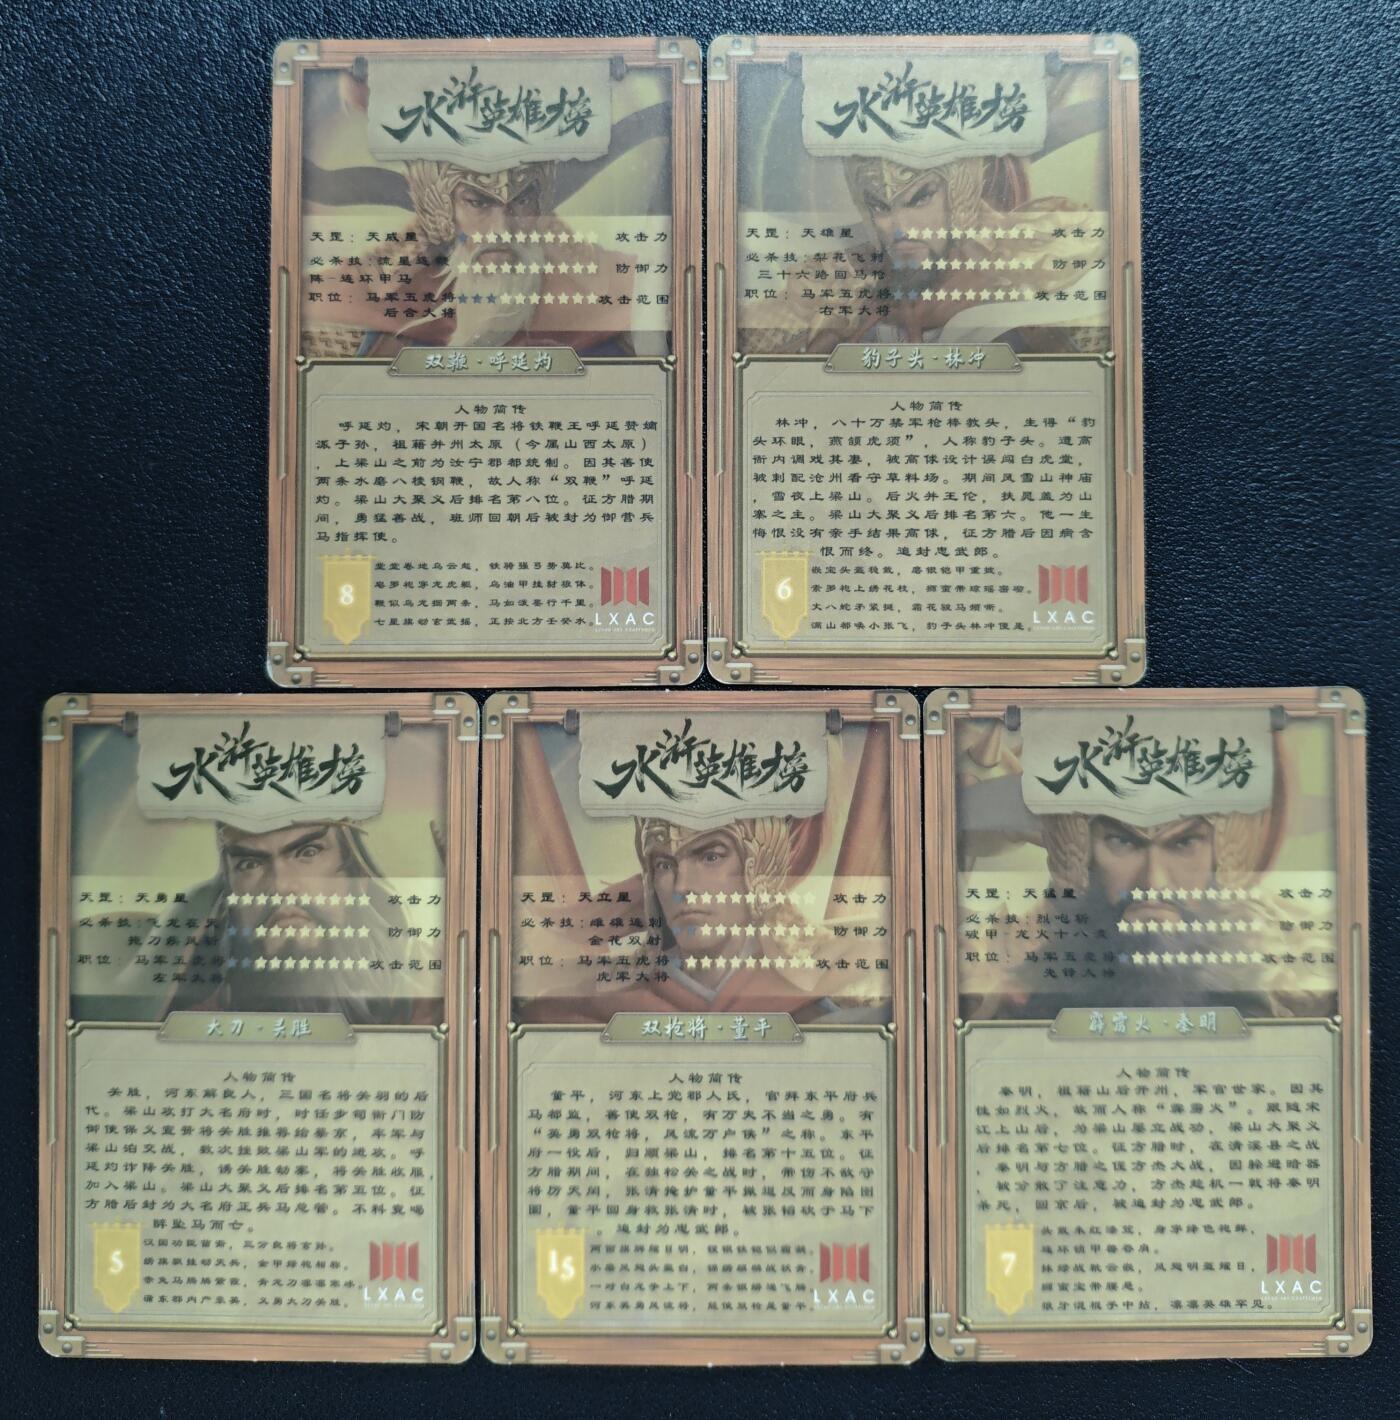 水浒英雄榜
天罡：天威星
攻击力
必杀技：流星连鞭
防御力
阵-连环甲马
职位：马军五虎将
攻击范围
后合大将
双鞭·呼延灼
人物简传
呼延灼，宋朝开国名将铁鞭王呼延赞嫡
派子孙，祖籍并州太原（今属山西太原）
，上梁山之前为汝宁郡都统制。因其善使
两条水磨八棱钢鞭，故人称“双鞭”呼延
灼。梁山大聚义后排名第八位。征方腊期
间，勇猛善战，班师回朝后被封为御营兵
马指挥使。
8
堂堂卷地乌云起，铁骑强弓势莫比。
皂罗袍穿龙虎躯，乌油甲挂豺狼体。
鞭似乌龙搦两条，马如泼墨行千里。
七星旗动玄武摇，正按北方壬癸水。
LXAC
水浒英雄榜
天罡：天雄星
攻击力
必杀技：梨花飞刺
防御力
三十六路回马枪
职位：马军五虎将
攻击范围
右军大将
豹子头·林冲
人物简传
林冲，八十万禁军枪棒教头，生得“豹
头环眼，燕颔虎须”，人称豹子头。遭高
衙内调戏其妻，被高俅设计误闯白虎堂，
被刺配沧州看守草料场。期间风雪山神庙
，雪夜上梁山。后火并王伦，扶晁盖为山
寨之主。梁山大聚义后排名第六。他一生
悔恨没有亲手结果高俅，征方腊后因病含
恨而终。追封忠武郎。
6
嵌宝头盔稳戴，磨银铠甲重披。
素罗袍上绣花枝，狮蛮带琼瑶密砌。
丈八蛇矛紧挺，霜花骏马频嘶。
满山都唤小张飞，豹子头林冲便是。
LXAC
水浒英雄榜
天罡：天勇星
攻击力
必杀技：飞龙在天
防御力
拖刀疾风斩
职位：马军五虎将
攻击范围
左军大将
大刀·关胜
人物简传
关胜，河东解良人，三国名将关羽的后
代。梁山攻打大名府时，时任步司衙门防
御使保义宣赞将关胜推荐给蔡京，率军与
梁山泊交战，数次挫败梁山军的进攻。呼
延灼诈降关胜，诱关胜劫寨，将关胜收服，
加入梁山。梁山大聚义后排名第五位。征
方腊后封为大名府正兵马总管。不料竟喝
醉坠马而亡。
5
汉国功臣苗裔，三分良将玄孙。
绣旗飘挂动天兵，金甲绿袍相称。
赤兔马腾腾紫霞，青龙刀凛凛寒冰。
蒲东郡内产豪英，义勇大刀关胜。
LXAC
水浒英雄榜
天罡：天立星
攻击力
必杀技：雌雄连刺
防御力
金花双射
职位：马军五虎将
攻击范围
虎军大将
双枪将·董平
人物简传
董平，河东上党郡人氏，官拜东平府兵
马都监，善使双枪，有万夫不当之勇。有
“英勇双枪将，风流万户侯”之称。东平
府一役后，归顺梁山，排名第十五位。征
方腊期间，在独松关之战时，带伤不敌守
将厉天闰，张清掩护董平撤退反而身陷囹
圄，董平回身救张清时，被张韬砍于马下
。追封为忠武郎。
15
两面旗牌耀日明，锼银铁铠似霜凝。
水磨凤翅头盔白，锦绣麒麟战袄青。
一对白龙争上下，两条银蟒递飞腾。
河东英勇风流将，能使双枪是董平。
LXAC
水浒英雄榜
天罡：天猛星
攻击力
必杀技：烈炮斩
防御力
破甲-龙火十八变
职位：马军五虎将
攻击范围
先锋大将
霹雳火·秦明
人物简传
秦明，祖籍山后开州，军官世家。因其
性如烈火，故而人称“霹雳火”。跟随宋
江上山后，为梁山屡立战功，梁山大聚义
后排名第七位。征方腊时，在清溪县之战
，秦明与方腊之侄方杰大战，因躲避暗器
，被分散了注意力，方杰趁机一戟将秦明
杀死，回京后，被追封为忠武郎。
7
头戴朱红漆笠，身穿绛色袍鲜，
连环锁甲兽吞肩。
抹绿战靴云嵌，凤翅明盔耀日，
狮蛮宝带腰悬。
狼牙混棍手中拈，凛凛英雄罕见。
LXAC